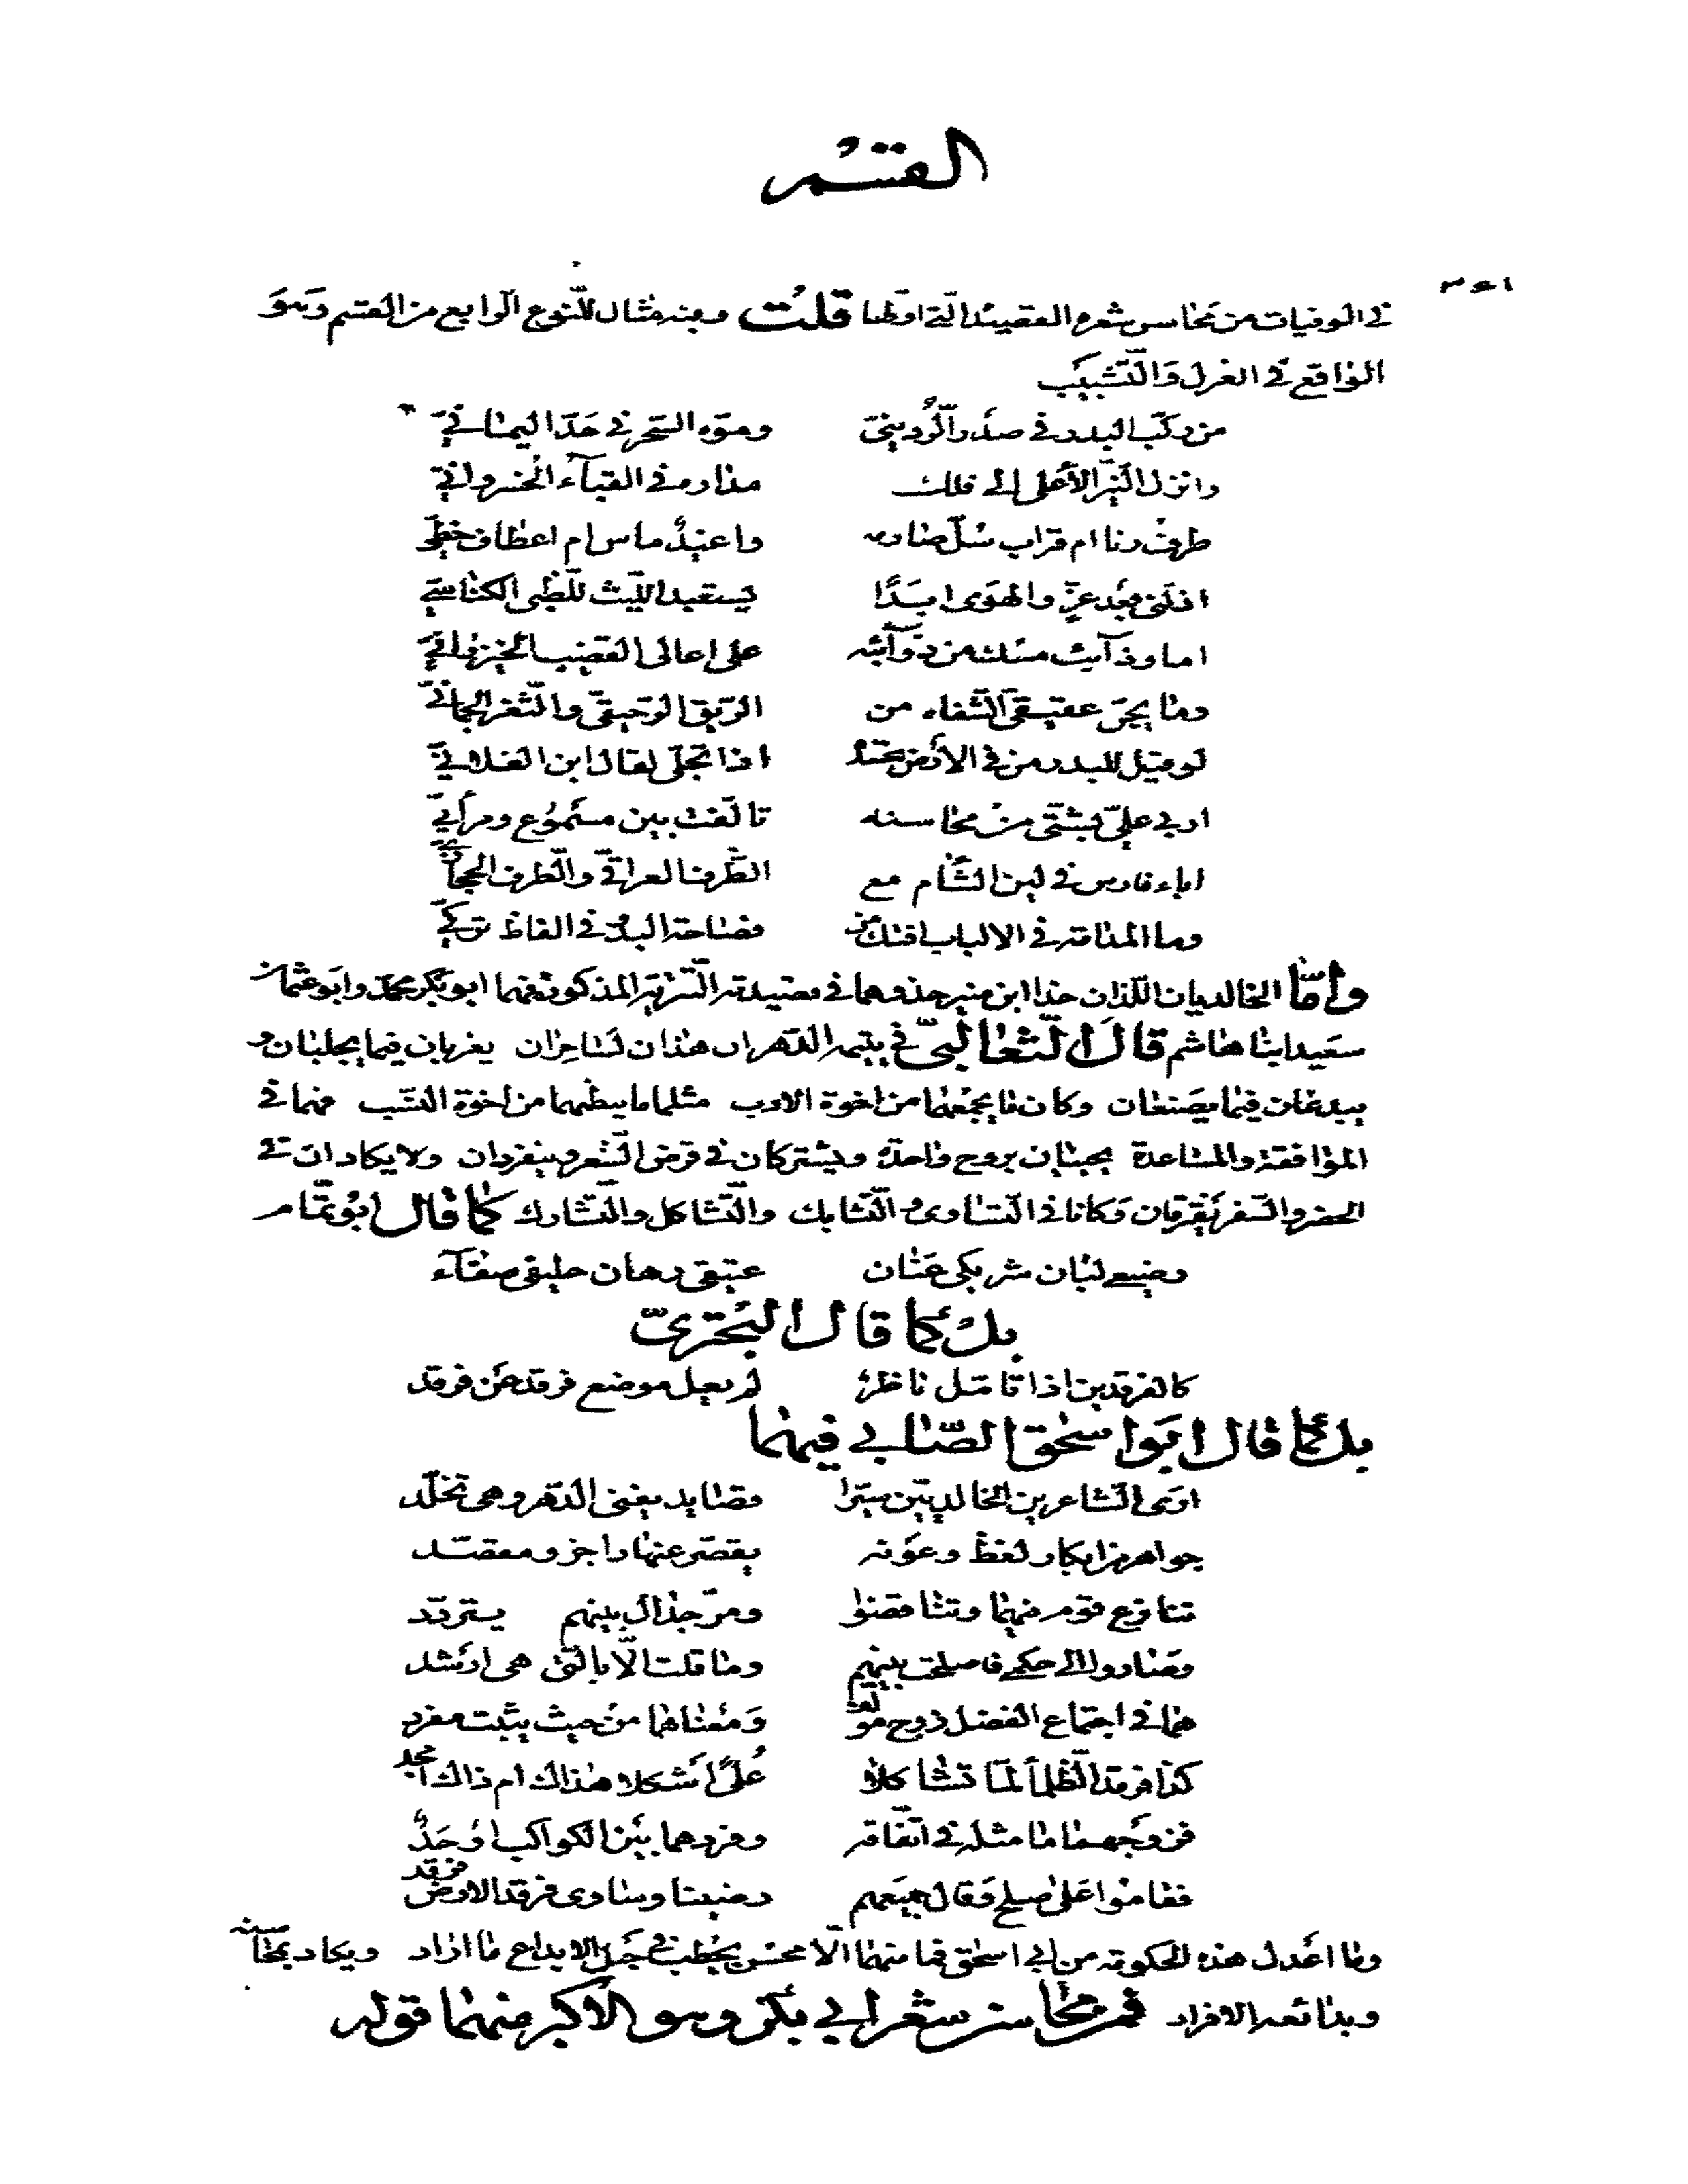 القسم
في الوفيات من محاسن شعره القصيدة التي اولها قلت وفيه مثال للنوع الرابع من القسم وهو
الواقع في الغزل والتشبيب
من ركب البدر في صدر الرديني وموه السحر في حد اليماني
وانزل النير الأعلى الى فلك مداره في القباء الخسرواني
طرف رنا ام قراب سل صارمه واغيد ماس ام اعطاف خطي
اذلني بعد عز والهوى ابدا يستعبد الليث للظبي الكناسي
اما وذائب مسك من ذوائبه على اعالي القضيب الخيزراني
وما يجن عقيقي الشفاه من الريق الرحيقي والثغر الجماني
لو قيل للبدر من في الأرض تحسده اذا تجلى لقال ابن الفلاني
اربى علي بشتى من محاسنه تالفت بين مسموع ومرأي
اباء فارس في لين الشأم مع الظرف العراقي والنطرف الحجازي
وما المدامة في الالباب افتك من فصاحة البدو في الفاظ تركي
وأما الخالديان اللذان حذا ابن منير حذوهما في قصيدته التترية المذكورة فهما ابو بكر محمد وابو عثمان
سعيد ابنا هاشم قال الثعالبي في يتيمة الدهر ان هذان لساحران يغربان فيما يجلبان و
يبدعان فيما يصنعان وكان ما يجمعهما من اخوة الادب مثلما ما ينظمهما من اخوة النسب فهما في
الموافقة والمساعدة يحييان بروح واحدة ويشتركان في قرض الشعر وينفردان ولا يكادان في
الحضر والسفر يفترقان وكانا في التساوي والتشابك والتشاكل والتشارك كما قال ابو تمام
رضيعي لبان شريكي عنان عتيقي رهان حليفي صفآء
بل كما قال البحتري
كالفرقدين اذا تأمل ناظر لم يعل موضع فرقد عن فرقد
بل كما قال ابو اسحق الصابي فيهما
ارى الشاعرين الخالديين سيرا قصايد يفنى الدهر وهي تخلد
جواهر من ابكار لفظ وعونه يقصر عنها راجز ومقصد
تنازع قوم فيهما وتناقضوا ومر جدال بينهم يتردد
وصاروا الى حكمي فاصلحت بينهم وما قلت الا بالتي هي ارشد
هما في اجتماع الفضل زوج مؤلف ومعناهما من حيث يثبت مفرد
كذا فرقد الظلمأ لما تشاكلا علا أشكلا هذاك ام ذاك امجد
فزوجهما ما مثله في اتفاقه وفردهما بين الكواكب اوحد
فقاموا على صلح وقال جميعهم رضينا وساوى فرقد الارض فرقد
وما اعدل هذه الحكومة من ابي اسحق فما منهما الا محسن يحطب في حبل الابداع ما اراد ويكاد بمحاسنه
وبدائعه الافراد فمن محاسن شعر ابي بكر وهو الأكبر منهما قوله